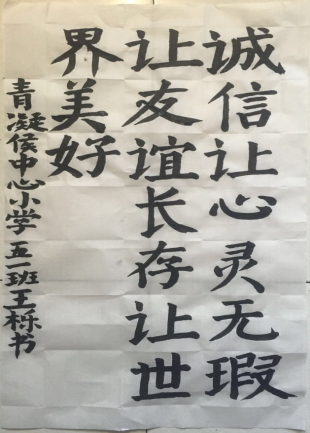 诚信让心灵无瑕
让友谊长存让世
界美好
青凝侯中心小学五一班王栎书